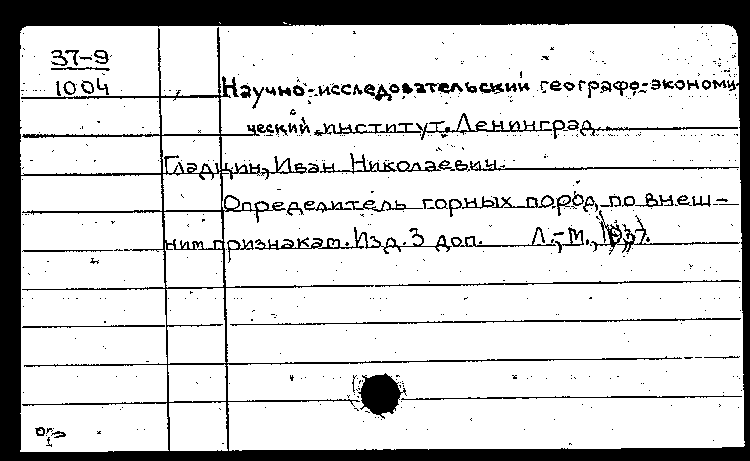 37-9
1004
Научно-исследовательский географо-экономи-
ческий институт. Ленинград
Гладцин, Иван Николаевич.
Определитель горных пород по внеш-
ним признакам. Изд. 3 доп. Л.-М., 1937.